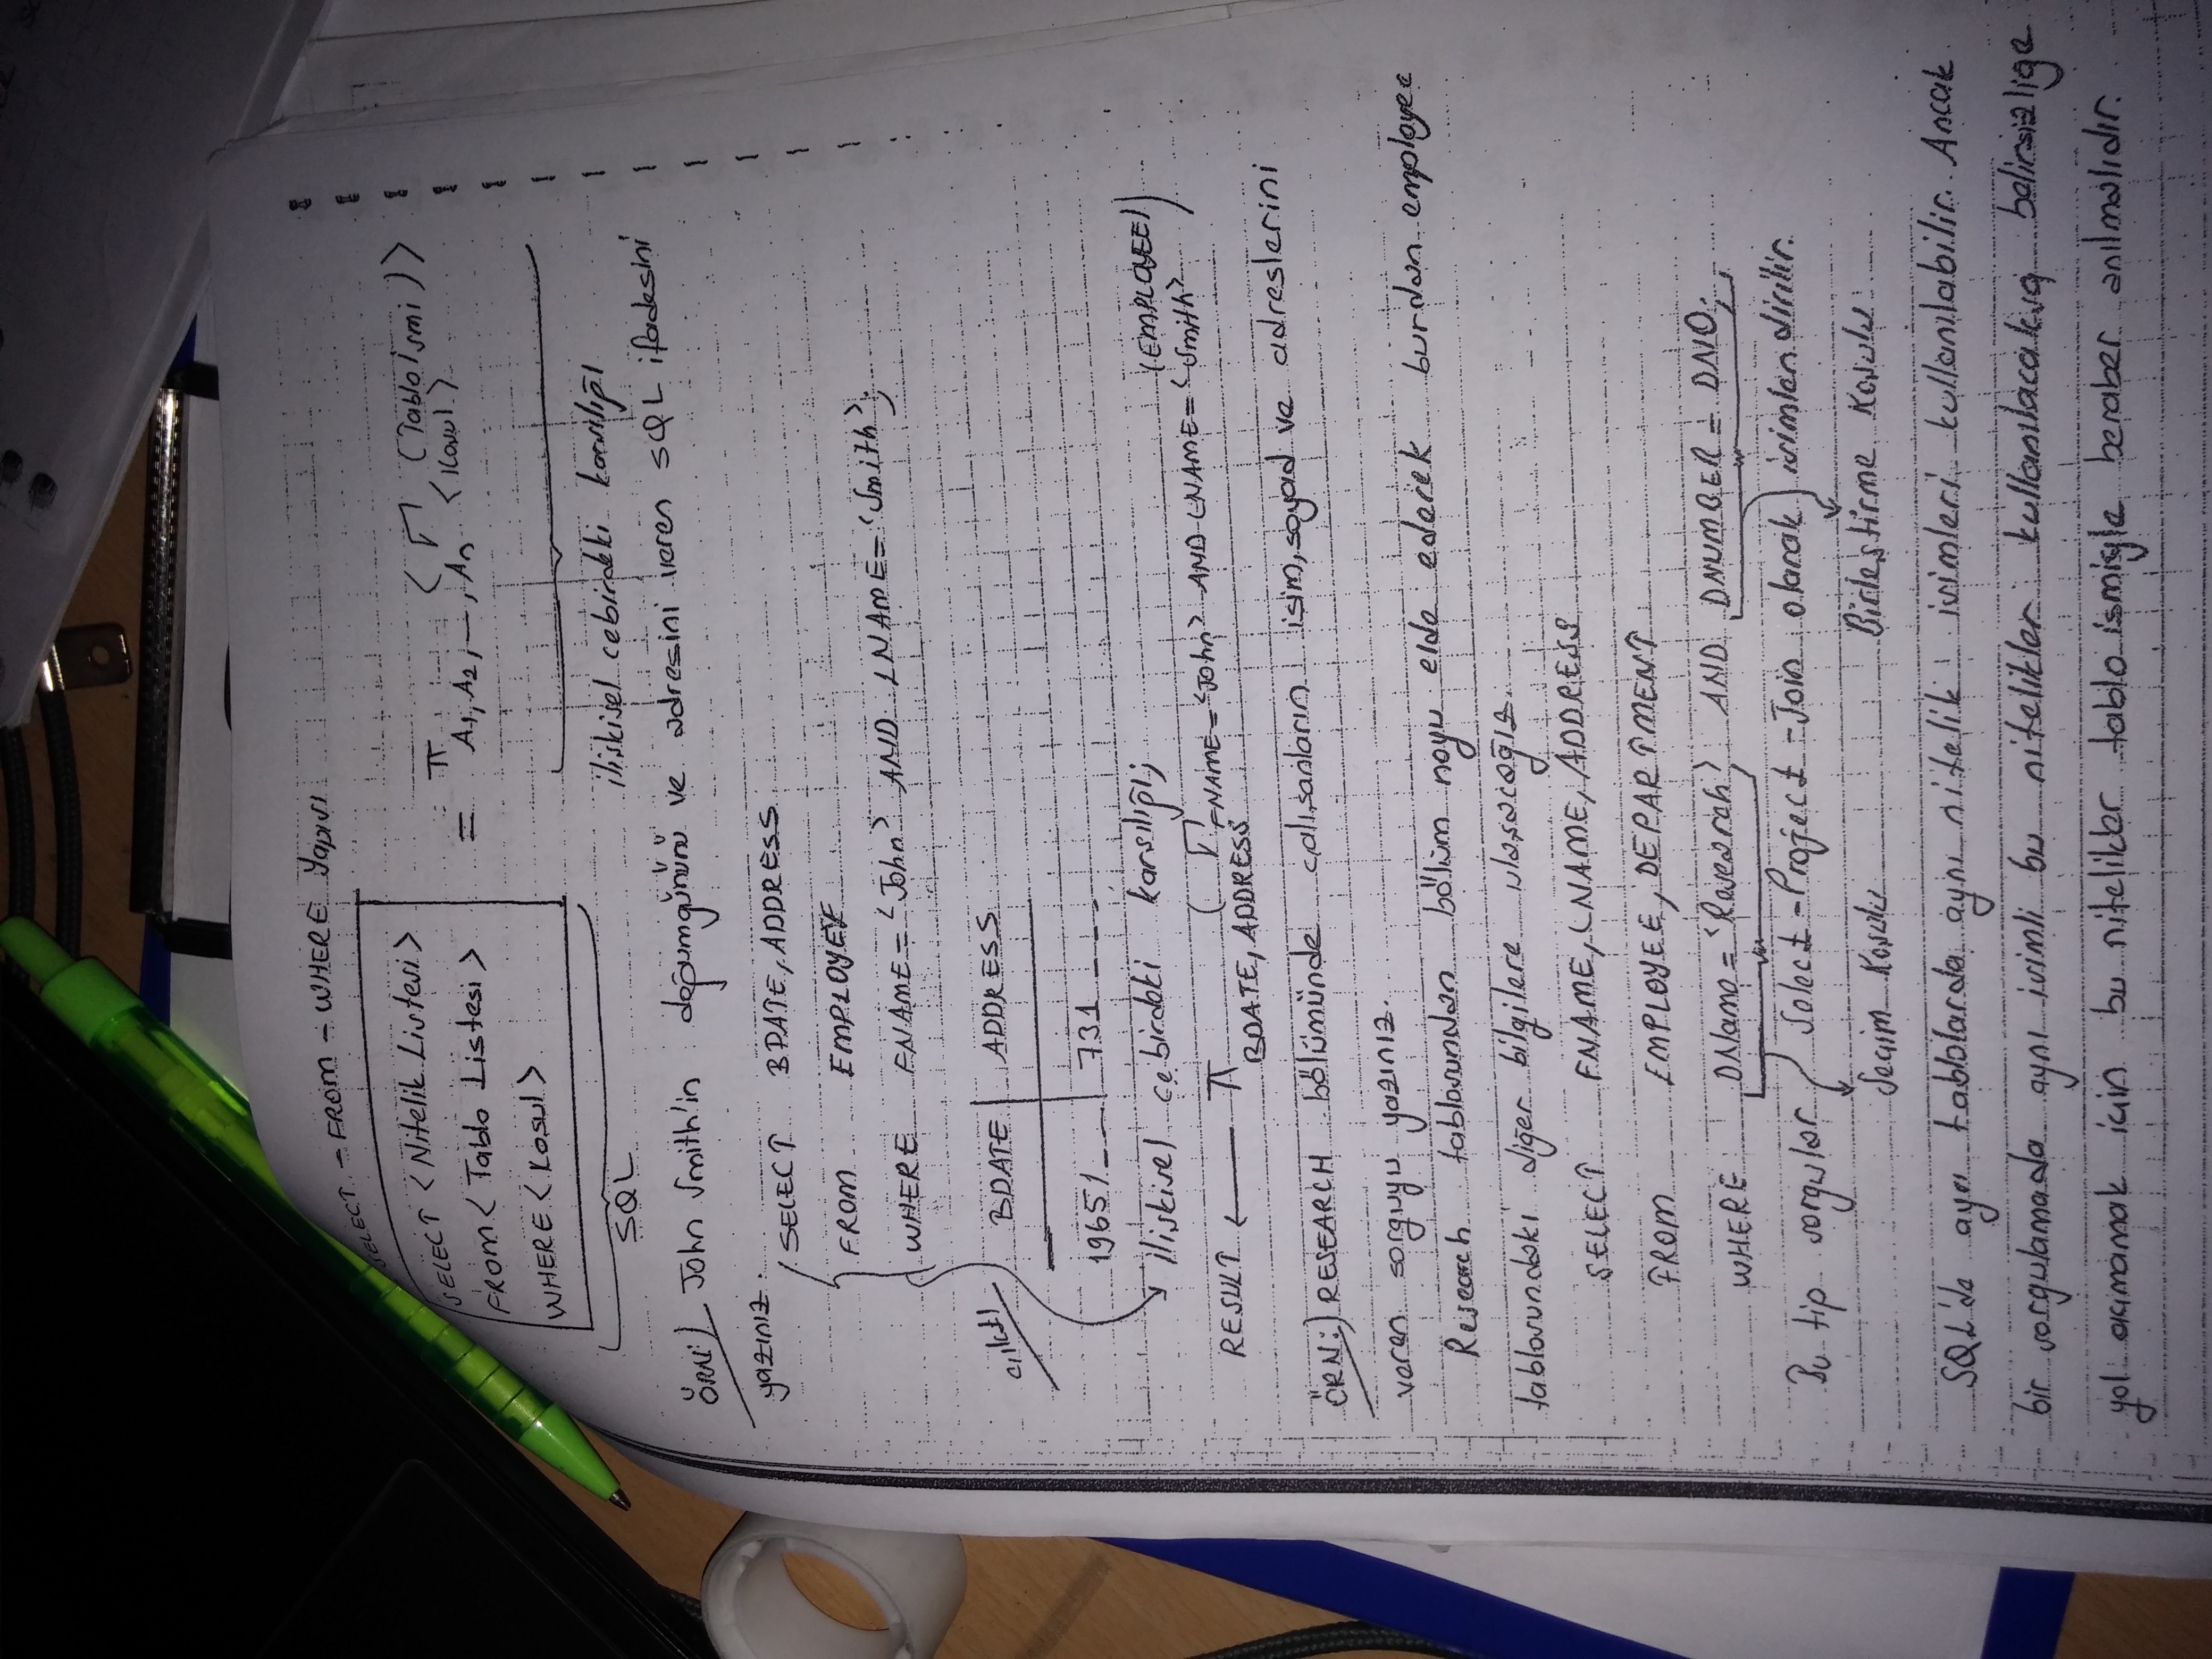 SELECT - FROM - WHERE Yapısı
SELECT <Nitelik Listesi>
FROM < Tablo Listesi >
WHERE < Kosul >
= π A1, A2, —, An < σ <Kosul> (Tablo Ismi) >
SQL
ilişkisel cebirdeki karsılığı
ÖRN:) John Smith'in doğumgününü ve adresini veren SQL ifadesini
yazınız.
SELECT BDATE, ADDRESS
FROM EMPLOYEE
WHERE FNAME = 'John' AND LNAME = 'Smith';
çıktı
BDATE | ADDRESS
1965/_ __ | 731 _ _ _ _
ilişkisel cebirdeki karsılığı;
RESULT ← π BDATE, ADDRESS ( σ FNAME = 'John' AND LNAME = 'Smith' (EMPLOYEE) )
ÖRN:) RESEARCH bölümünde çalışanların isim, soyad ve adreslerini
veren sorguyu yazınız.
Research tablosundan bölüm noyu elde ederek burdan employee
tablosundaki diğer bilgilere ulaşacağız.
SELECT FNAME, LNAME, ADDRESS
FROM EMPLOYEE, DEPARTMENT
WHERE DName = 'Research' AND DNUMBER = DNO;
Bu tip sorgular Select - Project - Join olarak isimlendirilir.
Seçim Koşulu
Birleştirme Koşulu
SQL'de ayrı tablolarda aynı nitelik isimleri kullanılabilir. Ancak
bir sorgulamada aynı isimli bu nitelikler kullanılacaksa belirsizliğe
yol açmamak için bu nitelikler tablo ismiyle beraber anılmalıdır.